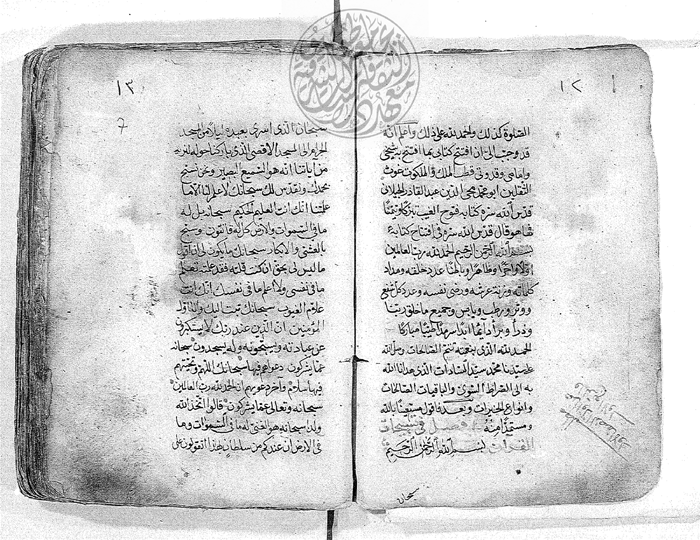 ١٢
الصلوة كذلك والحمد لله على ذلك واعلم انه
قد وجب الى ان افتتح كتابى بما افتتح به شيخى
وامامى وقدوتى قطب الملك والملكوت غوث
الثقلين ابو محمد محى الدين عبد القادر الجيلانى
قدس الله سره كتابه فتوح الغيب تبركا وتيمنا
فها هو قال قدس الله سره فى افتتاح كتابه
بسم الله الرحمن الرحيم الحمد لله رب العالمين
اولا واخرا وظاهرا وباطنا عدد خلقه ومداد
كلماته وزنة عرشه ورضى نفسه وعدد كل شفع
ووتر ورطب ويابس وجميع ما خلق ربنا
وذرأ وبرأ دائما ابدا سرمدا طيبا مباركا
الحمد لله الذى بنعمته تتم الصالحات وصلى الله
على سيدنا محمد سيد السادات الذى هدانا الله
به الى الصراط السوى والباقيات الصالحات
وانواع الخيرات وبعد فاقول مستعينا بالله
ومستمدا منه فصل فى تسبيحات
القرآن بسم الله الرحمن الرحيم
سبحان
١٣
7
سبحان الذى اسرى بعبده ليلا من المسجد
الحرام الى المسجد الاقصى الذى باركنا حوله لنريه
من آياتنا انه هو السميع البصير ونحن نسبح
بحمدك ونقدس لك سبحانك لا علم لنا الا ما
علمتنا انك انت العليم الحكيم سبحانه بل له
ما فى السموات والارض كل له قانتون وسبح
بالعشى والابكار سبحانك ما يكون لى ان اقول
ما ليس لى بحق ان كنت قلته فقد علمته تعلم
ما فى نفسى ولا اعلم ما فى نفسك انك انت
علام الغيوب سبحانك تبت اليك وانا اول
المؤمنين ان الذين عند ربك لا يستكبرون
عن عبادته ويسبحونه وله يسجدون سبحانه
عما يشركون دعواهم فيها سبحانك اللهم وتحيتهم
فيها سلام وآخر دعواهم ان الحمد لله رب العالمين
سبحانه وتعالى عما يشركون قالوا اتخذ الله
ولدا سبحانه هو الغنى له ما فى السموات وما
فى الارض ان عندكم من سلطان بهذا اتقولون على